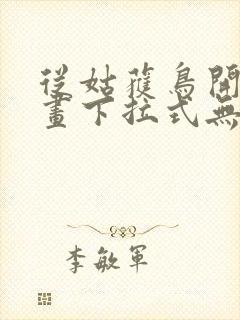 從姑獲鳥開
畫下拉式無
李敏軍